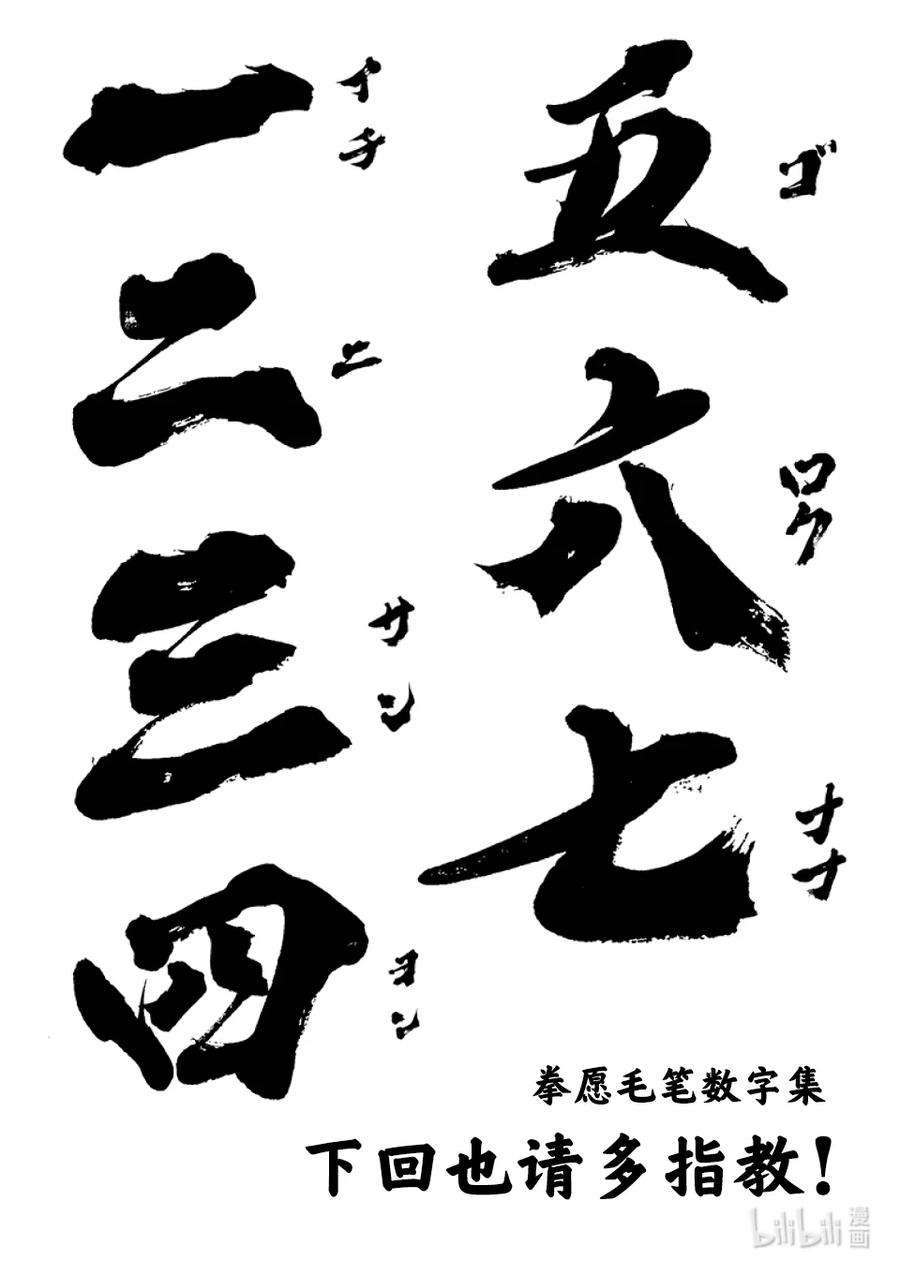 一 イチ
二 ニ
三 サン
四 ヨン
五 ゴ
六 ロク
七 ナナ
拳愿毛笔数字集
下回也请多指教!
bilibili 漫画